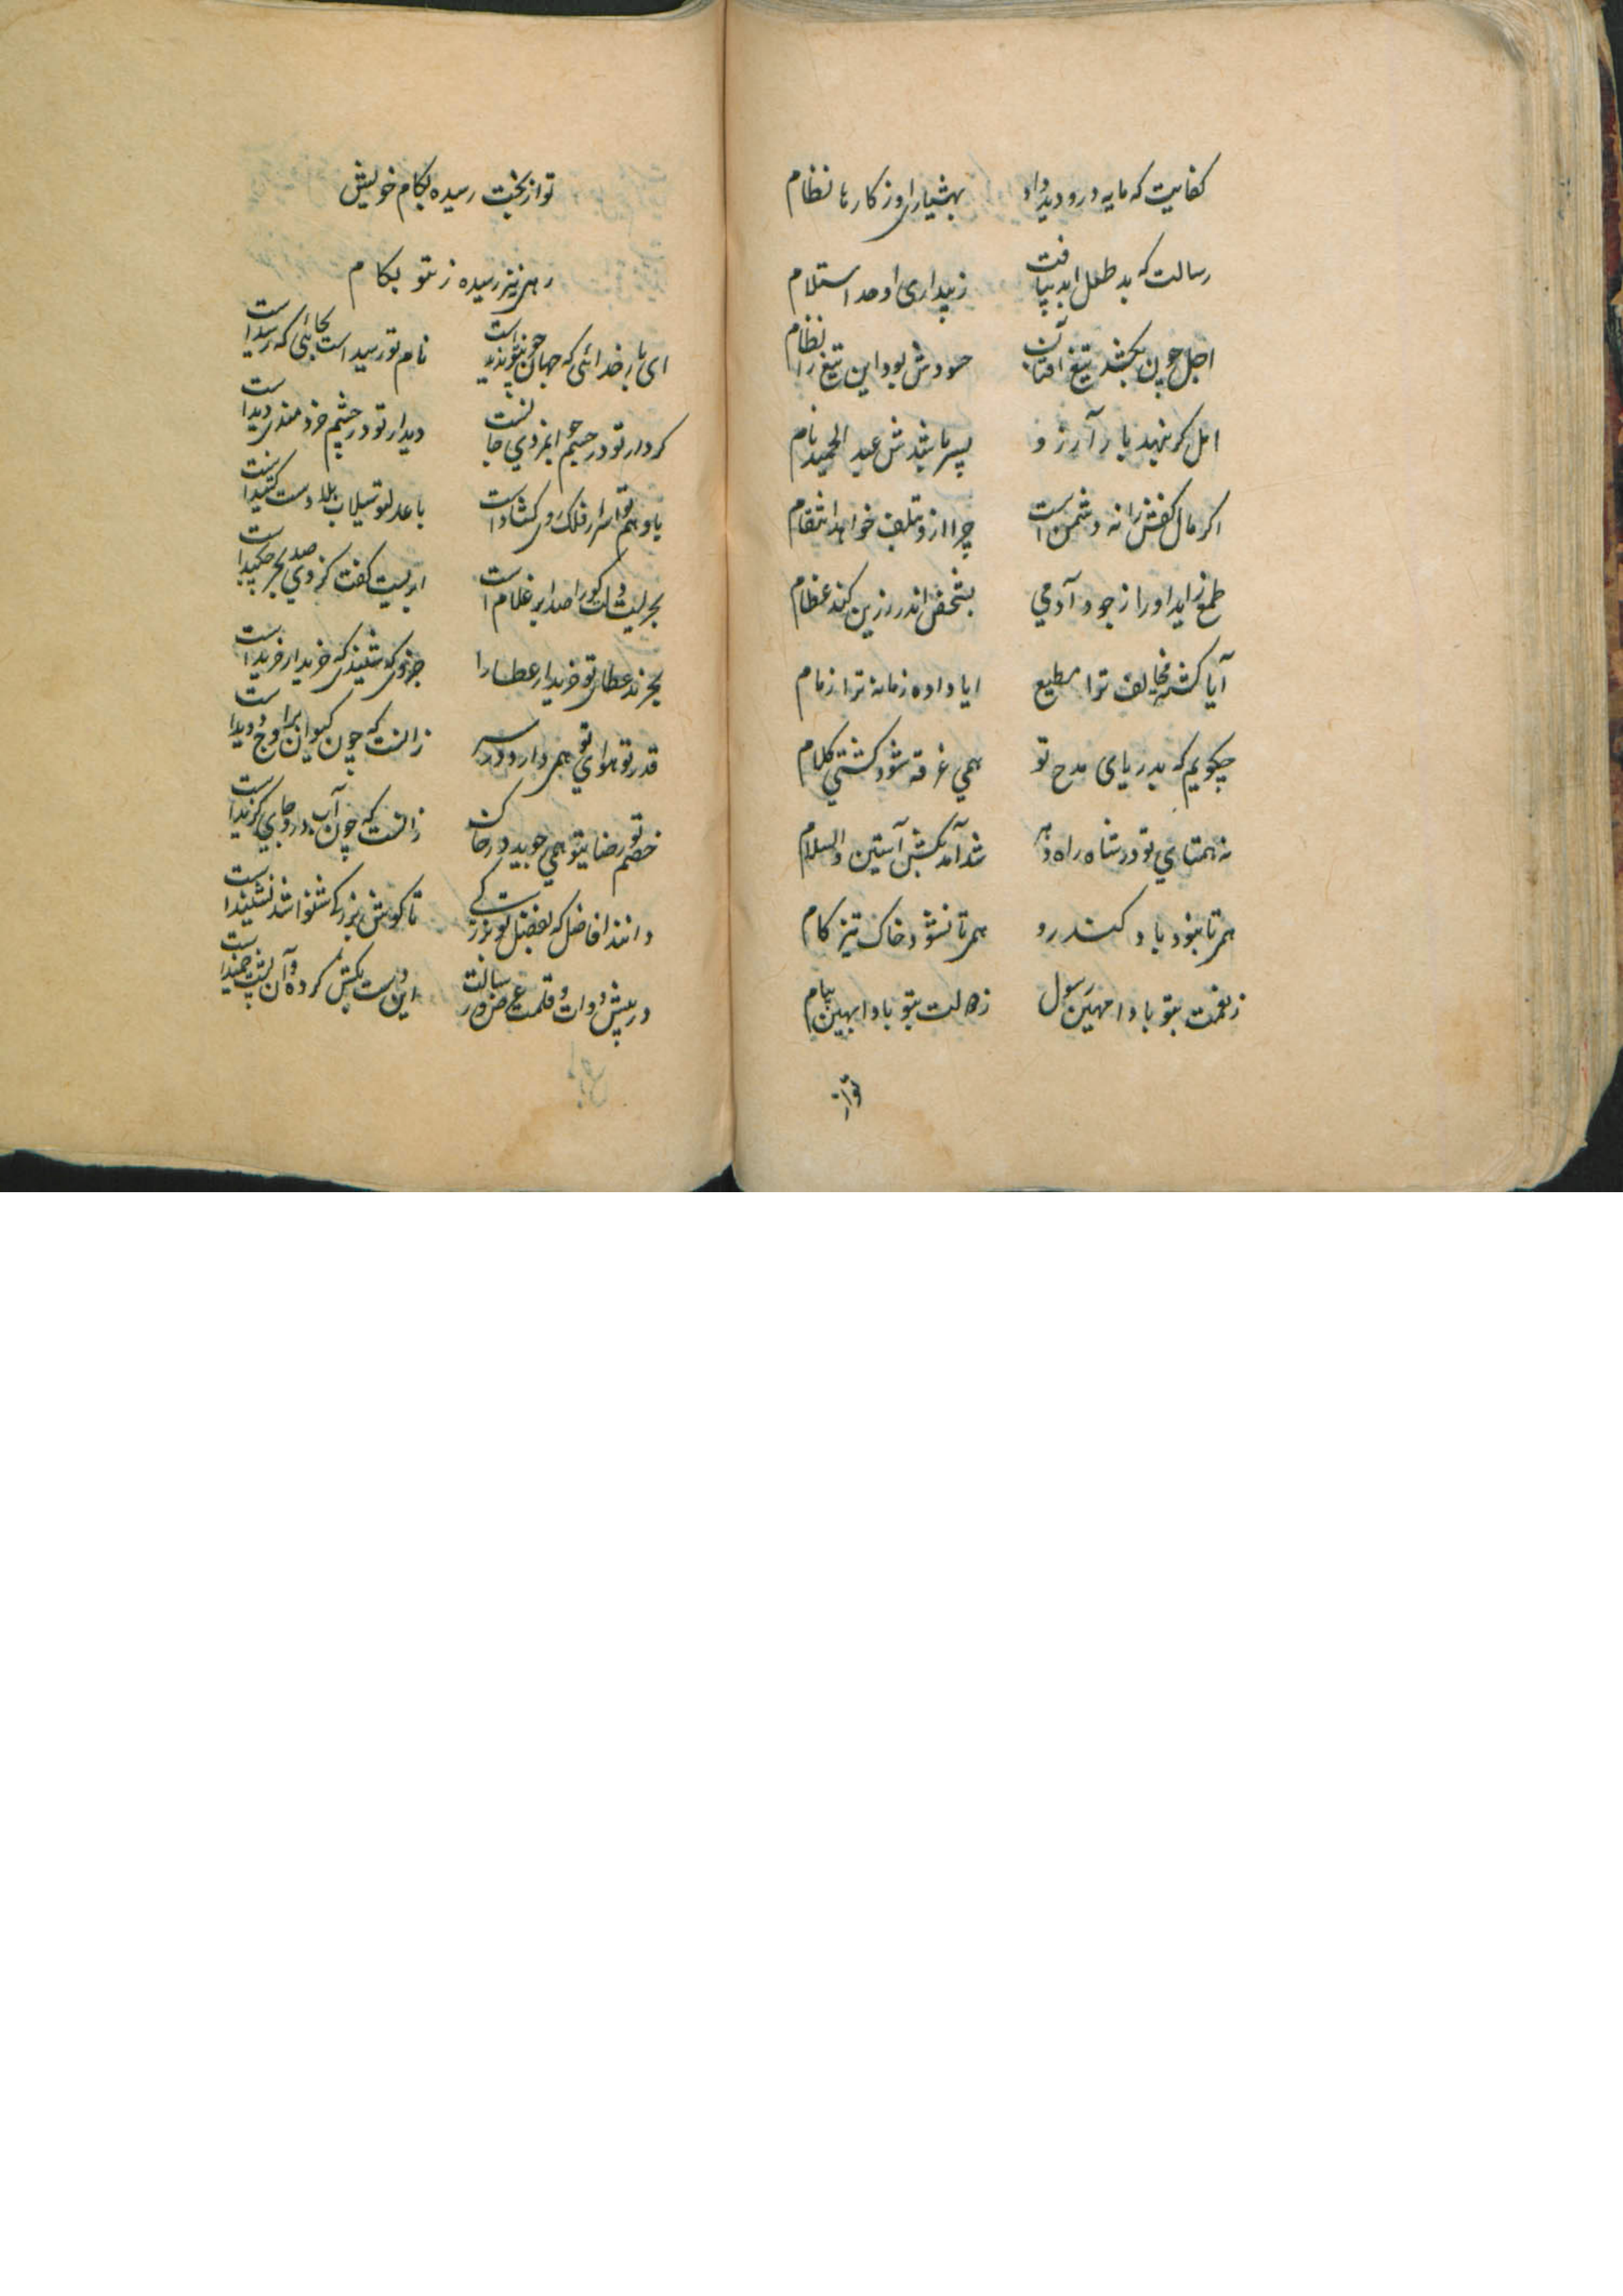 کفایت که مایه درو دید داد بهشیاری او ز کارها نظام
رسالت که بد طلل ابد بیافت ز بیداری او حد استلام
اجل چون بکشد تیغ آفتاب آن حسودش بود این تیغ را نظام
امل کر بنهد بار آرزو پسر باشدش عبد الحمید نام
اکر مال کفش را نه دشمن است چرا ازو تلف خواهد انتقام
طمع زاید او را ز جود آدمی بشخص اندر رزین کند عظام
آیا کشته مخالف ترا مطیع ایا داده زمانه ترا زمام
چکویم که بدریای مدح تو همی غرقه شود کشتی کلام
نه همتای تو در شاه راه دهر شد آمد بکش آستین والسلام
همی تا نبود باد کند رو همی تا نشود خاک تیز کام
ز نعمت بتو بادا مهین رسول ز دولت بتو بادا بهین پیام
تو از
تو از بخت رسیده بکام خویش
رهی نیز رسیده ز تو بکام
ای بار خدائی که جهان چون تو ندید است نام تو رسید است بجائی که رسید است
کردار تو در جسم ابزدی جا نست دیدار تو در چشم خردمندی دید است
با وهم تو اسرار فلک روی کشاد است با عدل تو سیلاب بلا دست کشید است
بحریست دوات کو را صد ابر غلام است ابریست کفت کز وی صد بحر چکید است
بخرند عطای تو خریدار عطا را جز تو که شنید که خریدار خرید است
قدر تو هوای تو همی دارد در سر زانست که چون کیوان بر اوج دوید است
خصم تو رضای تو همی جوید در خاک زانست که چون آب درو جای کزید است
دانند افاضل که بفضل تو بزرکی تا کوش بزرکی شنوا شد نشنید است
در پیش دوات و قلمت عرض رسالت این دست بکش کرده و آن پشت خمید است